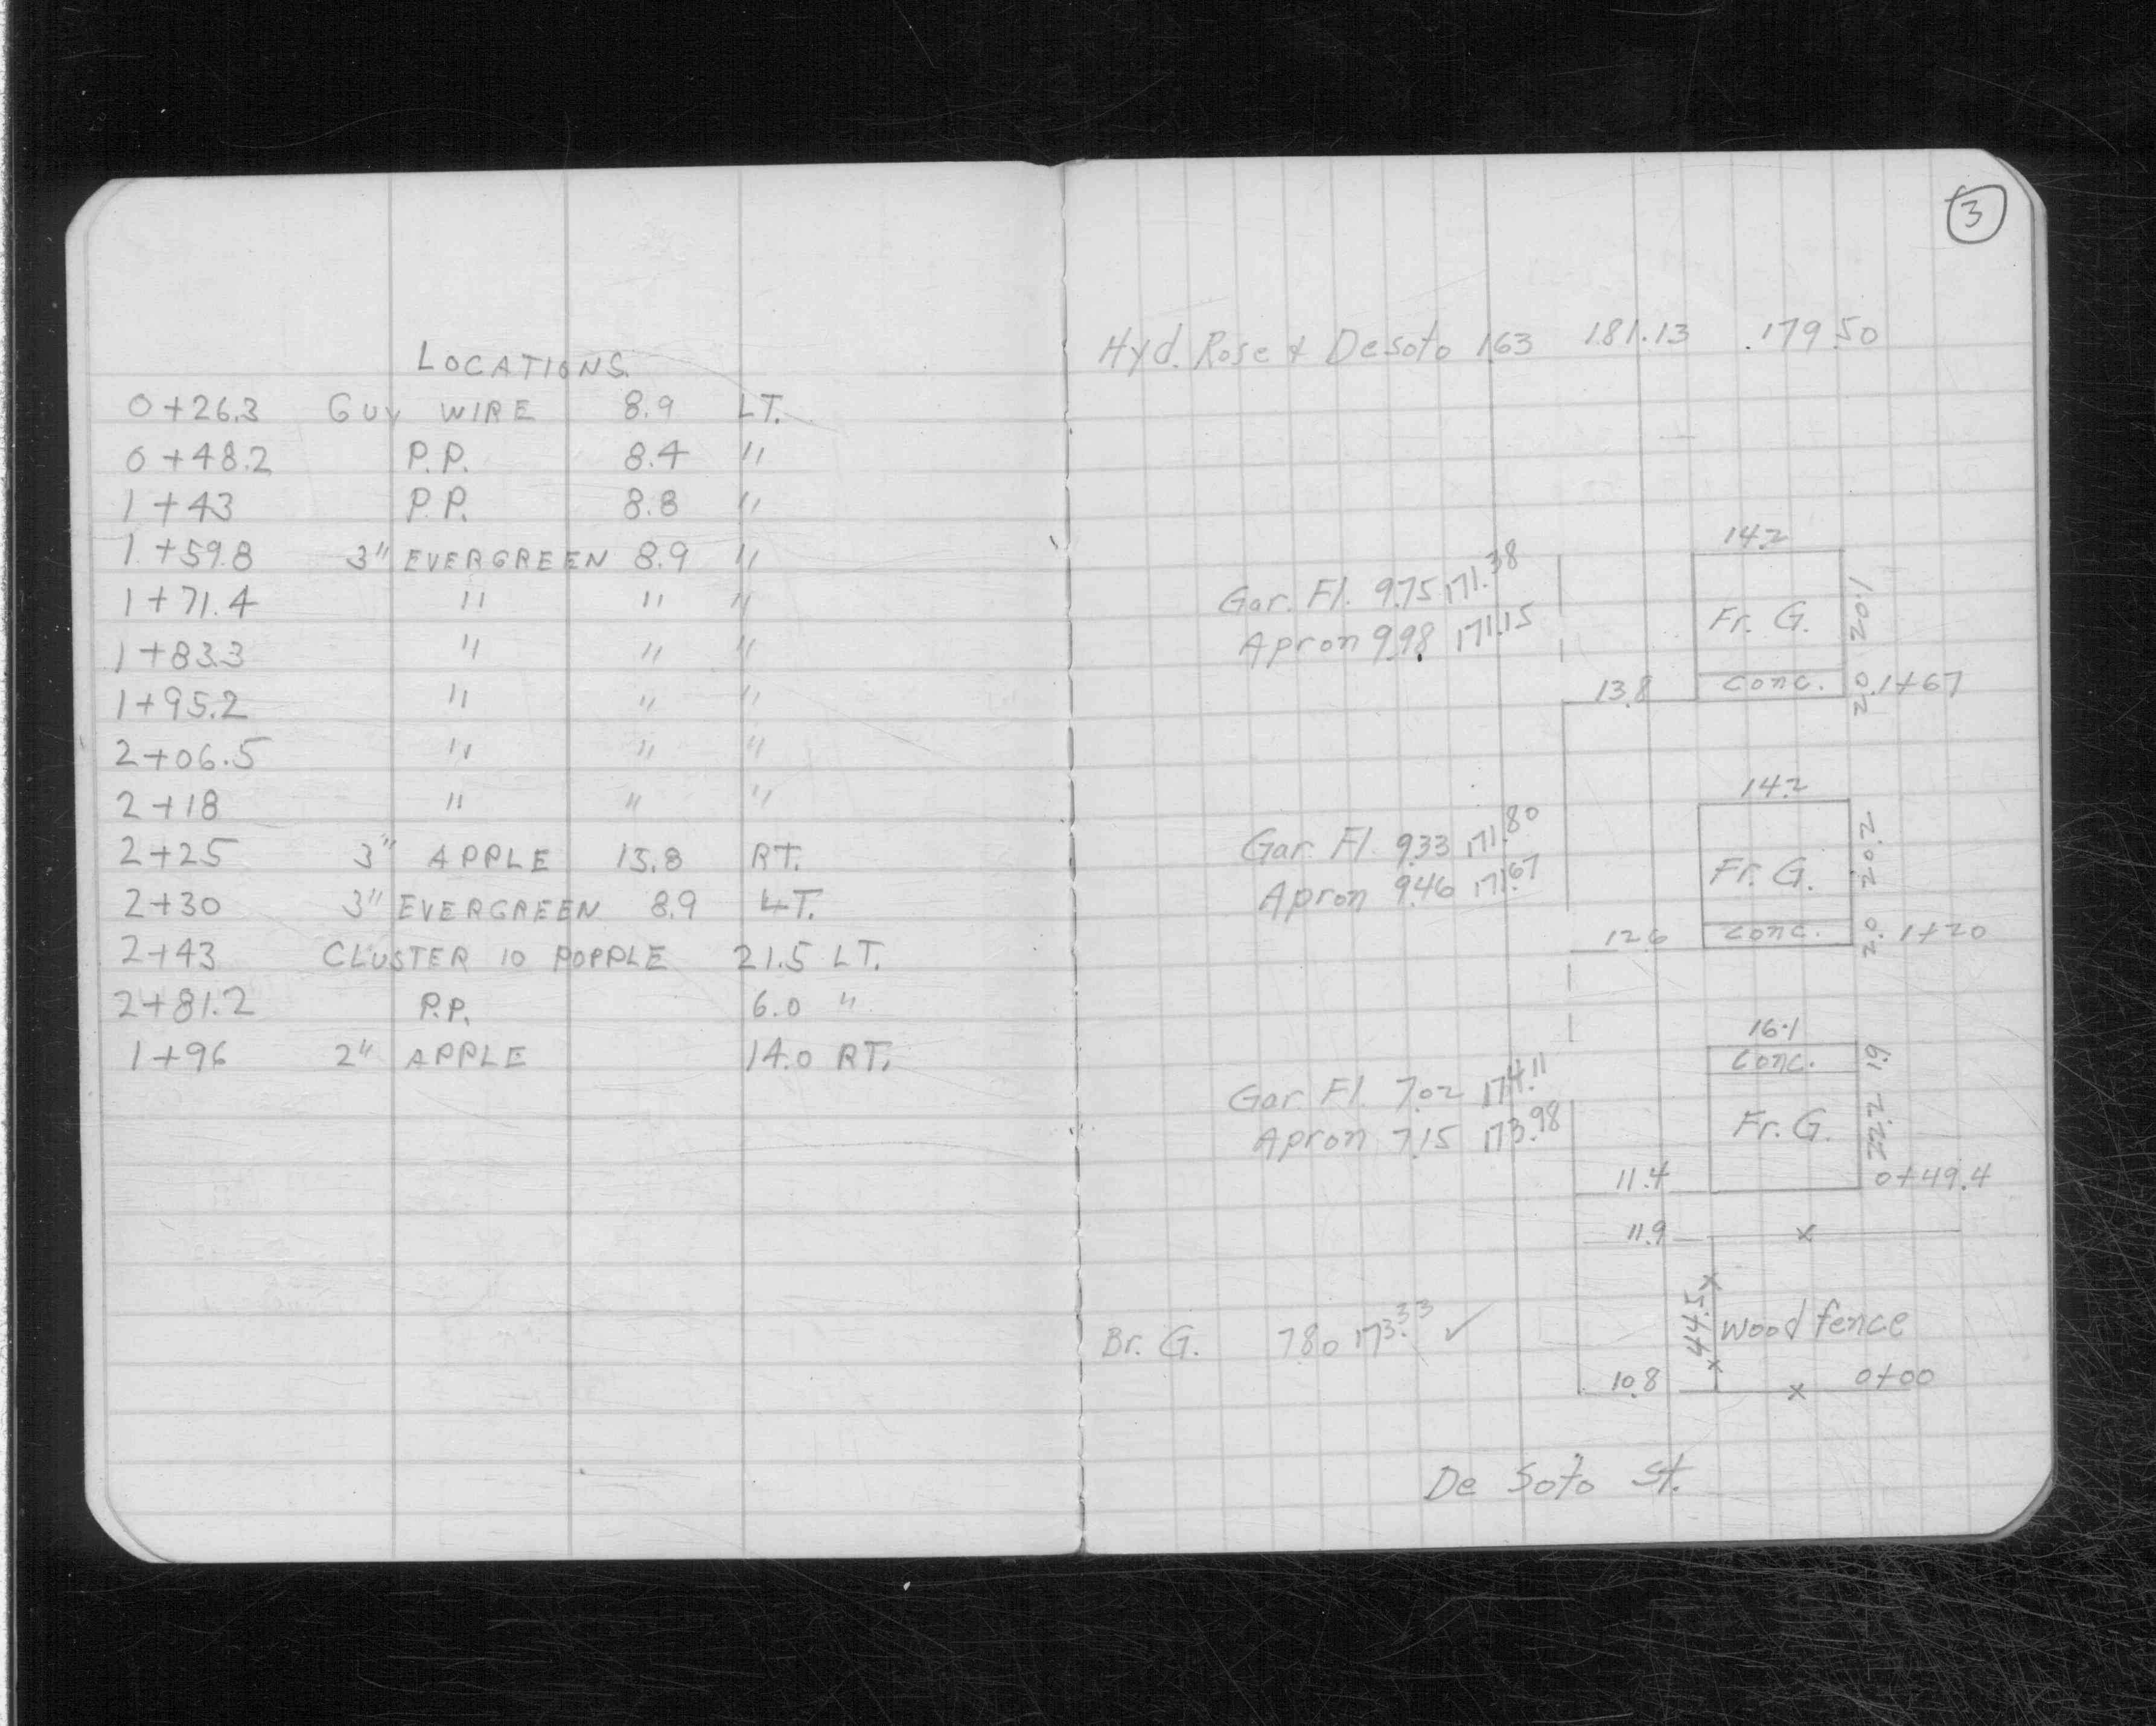 LOCATIONS.
0+26.3 GUY WIRE 8.9 LT.
0+48.2 P.P. 8.4 "
1+43 P.P. 8.8 "
1+59.8 3" EVERGREEN 8.9 "
1+71.4 " " "
1+83.3 " " "
1+95.2 " " "
2+06.5 " " "
2+18 " " "
2+25 3" APPLE 15.8 RT.
2+30 3" EVERGREEN 8.9 LT.
2+43 CLUSTER 10 POPPLE 21.5 LT.
2+81.2 P.P. 6.0 "
1+96 2" APPLE 14.0 RT.
3
Hyd. Rose & Desoto 1.63 181.13 179.50
14.2
Gar. Fl. 9.75 171.38
Fr. G. 20.1
Apron 9.98 171.15
13.8 conc. 2.0 1+67
14.2
Gar. Fl. 9.33 171.80
Fr. G. 20.2
Apron 9.46 171.67
12.6 conc. 2.0 1+20
16.1
conc. 1.9
Gar. Fl. 7.02 174.11
Fr. G. 22.2
Apron 7.15 173.98
11.4 0+49.4
11.9 x
44.5 x x
Wood fence
Br. G. 7.80 173.33 ✓
10.8 x 0+00
De Soto St.